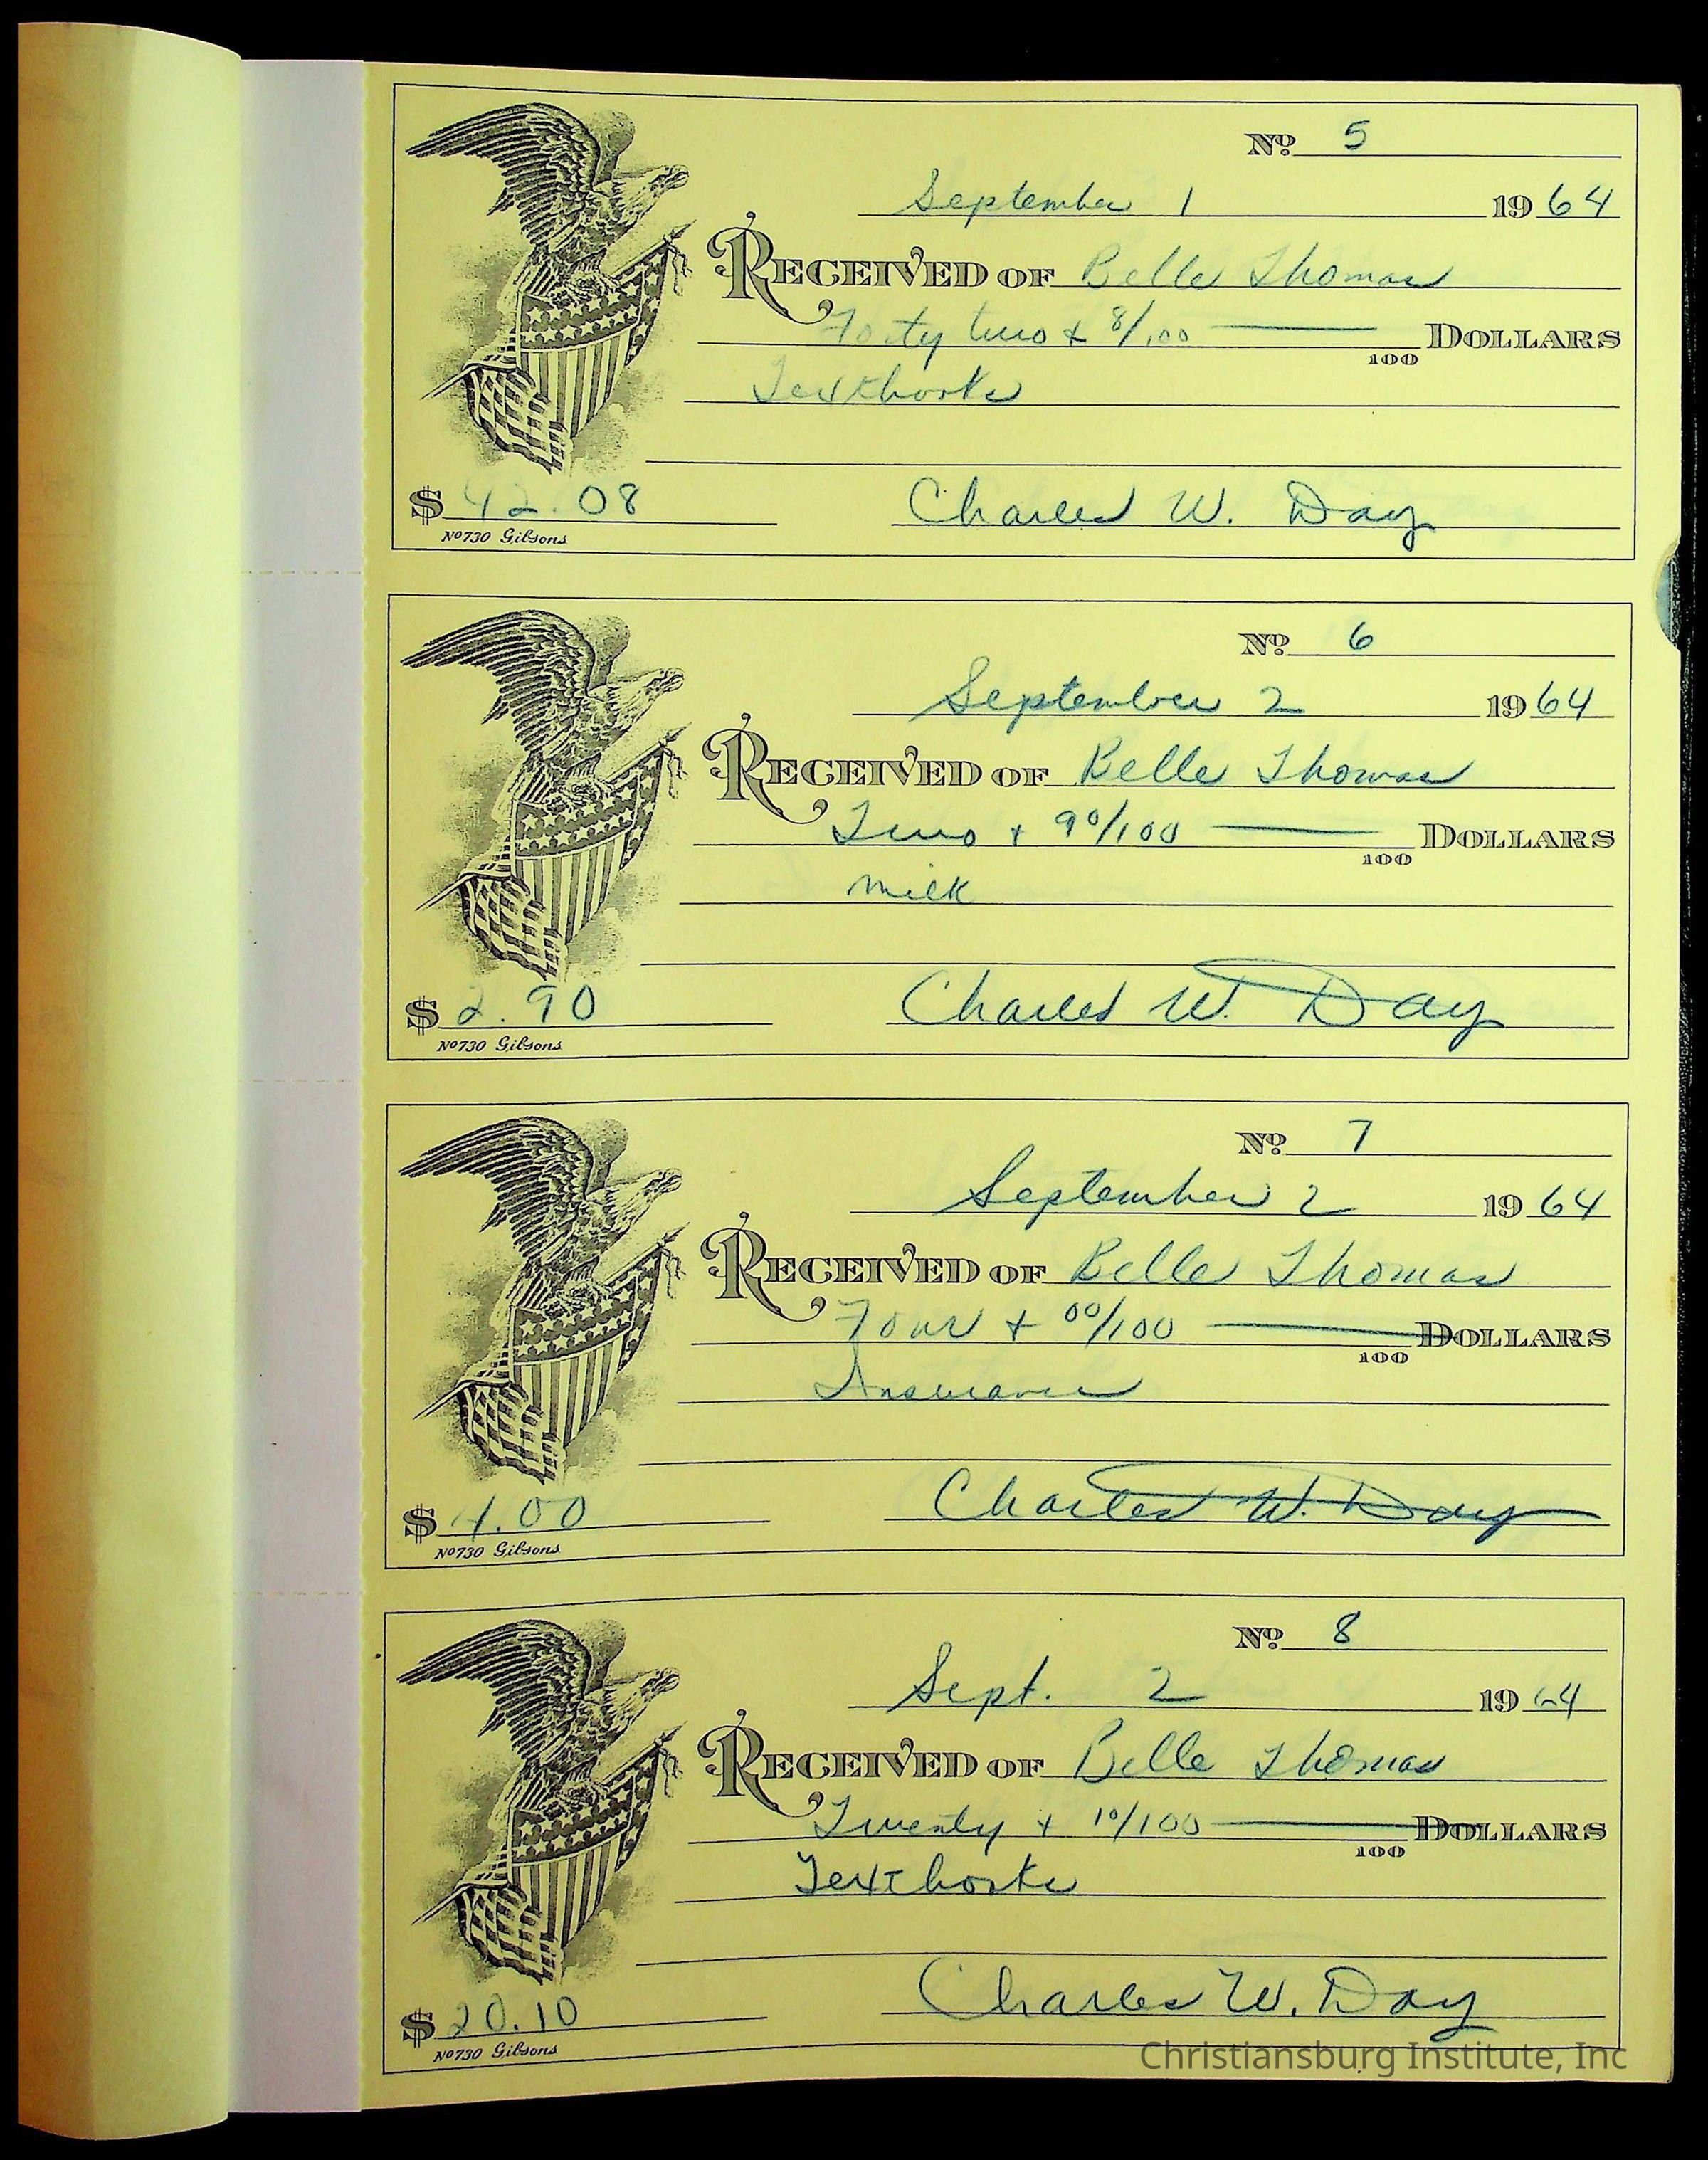 Nº 5
September 1 1964
RECEIVED OF Belle Thomas
Forty two + 8/100 DOLLARS
100
Textbooks
$ 42.08 Charles W. Day
Nº730 Gibsons
Nº 6
September 2 1964
RECEIVED OF Belle Thomas
Two + 90/100 DOLLARS
100
milk
$ 2.90 Charles W. Day
Nº730 Gibsons
Nº 7
September 2 1964
RECEIVED OF Belle Thomas
Four + 00/100 DOLLARS
100
Insurance
$ 4.00 Charles W. Day
Nº730 Gibsons
Nº 8
Sept. 2 1964
RECEIVED OF Belle Thomas
Twenty + 10/100 DOLLARS
100
Textbooks
$ 20.10 Charles W. Day
Nº730 Gibsons
Christiansburg Institute, Inc